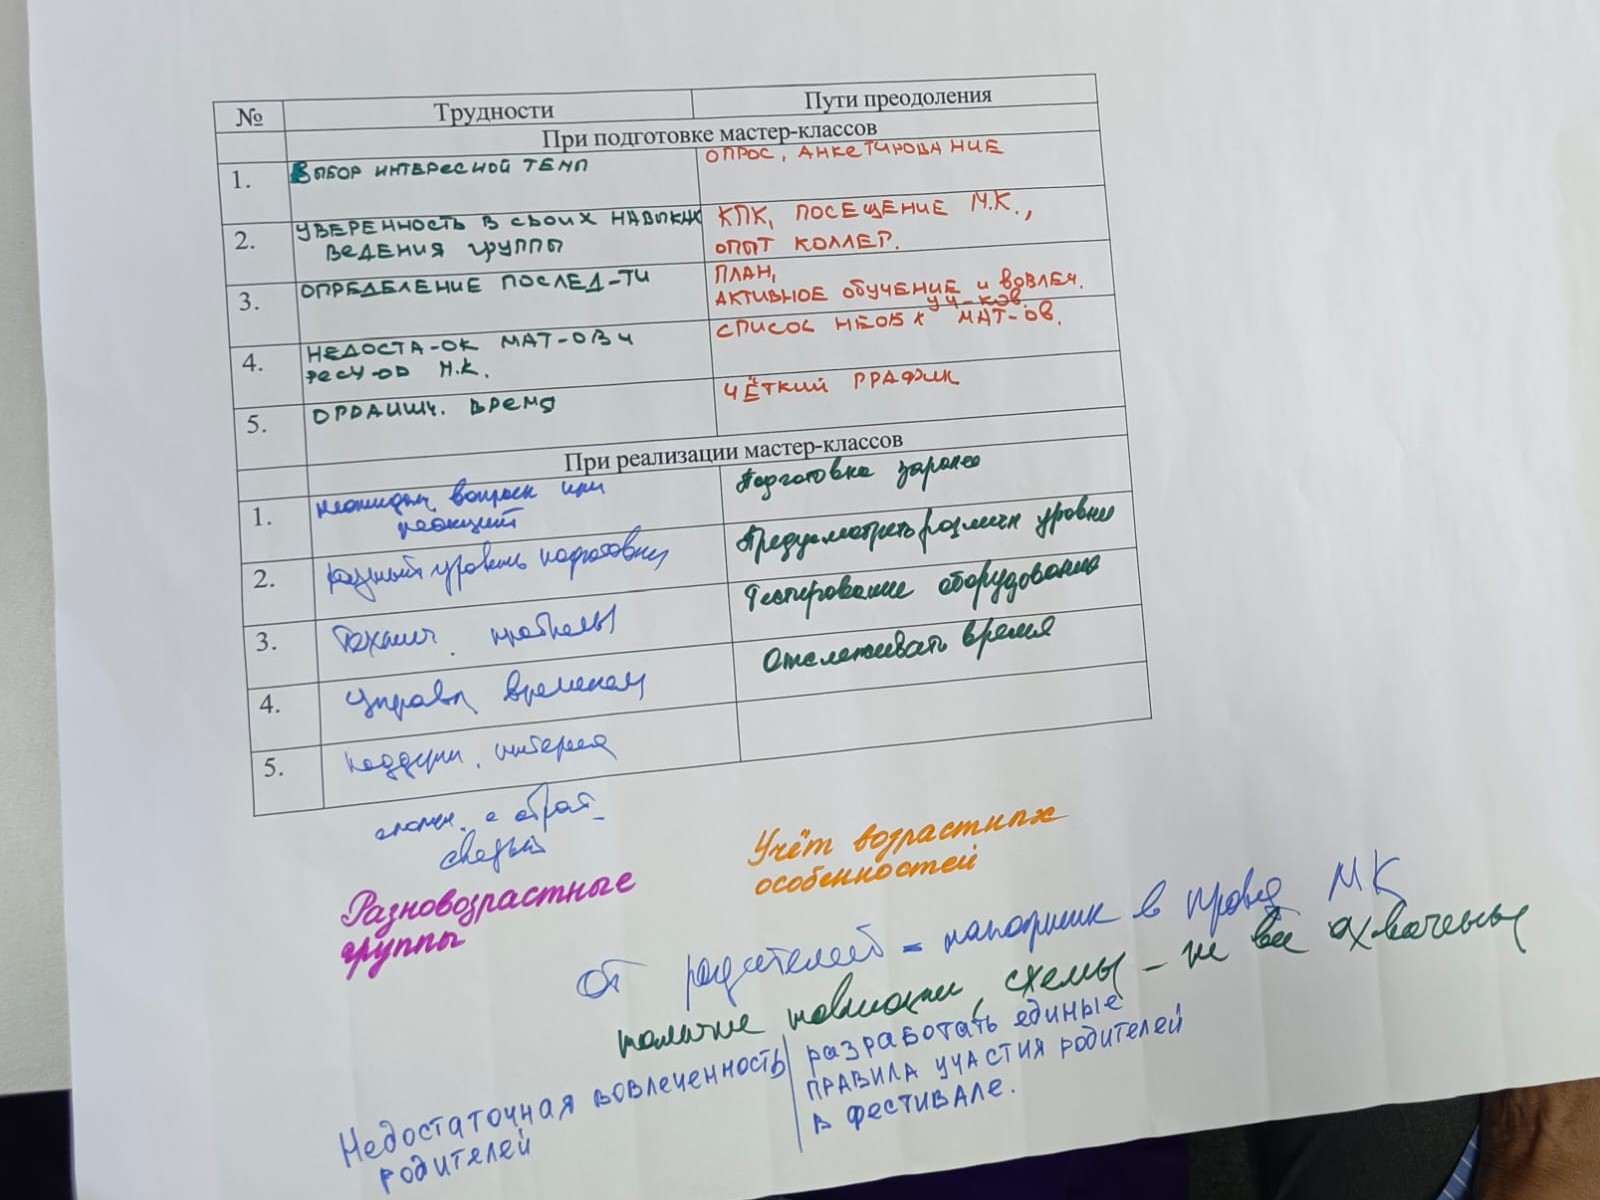 № Трудности Пути преодоления
При подготовке мастер-классов
1. Выбор интересной темы опрос, анкетирование
2. уверенность в своих навыках КПК, посещение М.К.,
ведения группы опыт коллег.
3. определение послед-ти план,
активное обучение и вовлеч.
уч-ков.
4. недоста-ок мат-ов и список необх мат-ов.
ресу-ов М.К.
5. органич. время чёткий график
При реализации мастер-классов
1. неожидан. вопросы или Подготовка заранее
реакций
2. разный уровень подготовки Предусмотреть различн уровни
3. Технич. проблемы Тестирование оборудования
4. Управл временем Отслеживать время
5. поддерж. интереса
сложн. с обрат.
связью
Разновозрастные
группы
Учёт возрастных
особенностей
от родителей = помощник в провед МК
наличие схемы – не все охвачены
Недостаточная вовлеченность
родителей
разработать единые
правила участия родителей
в фестивале.